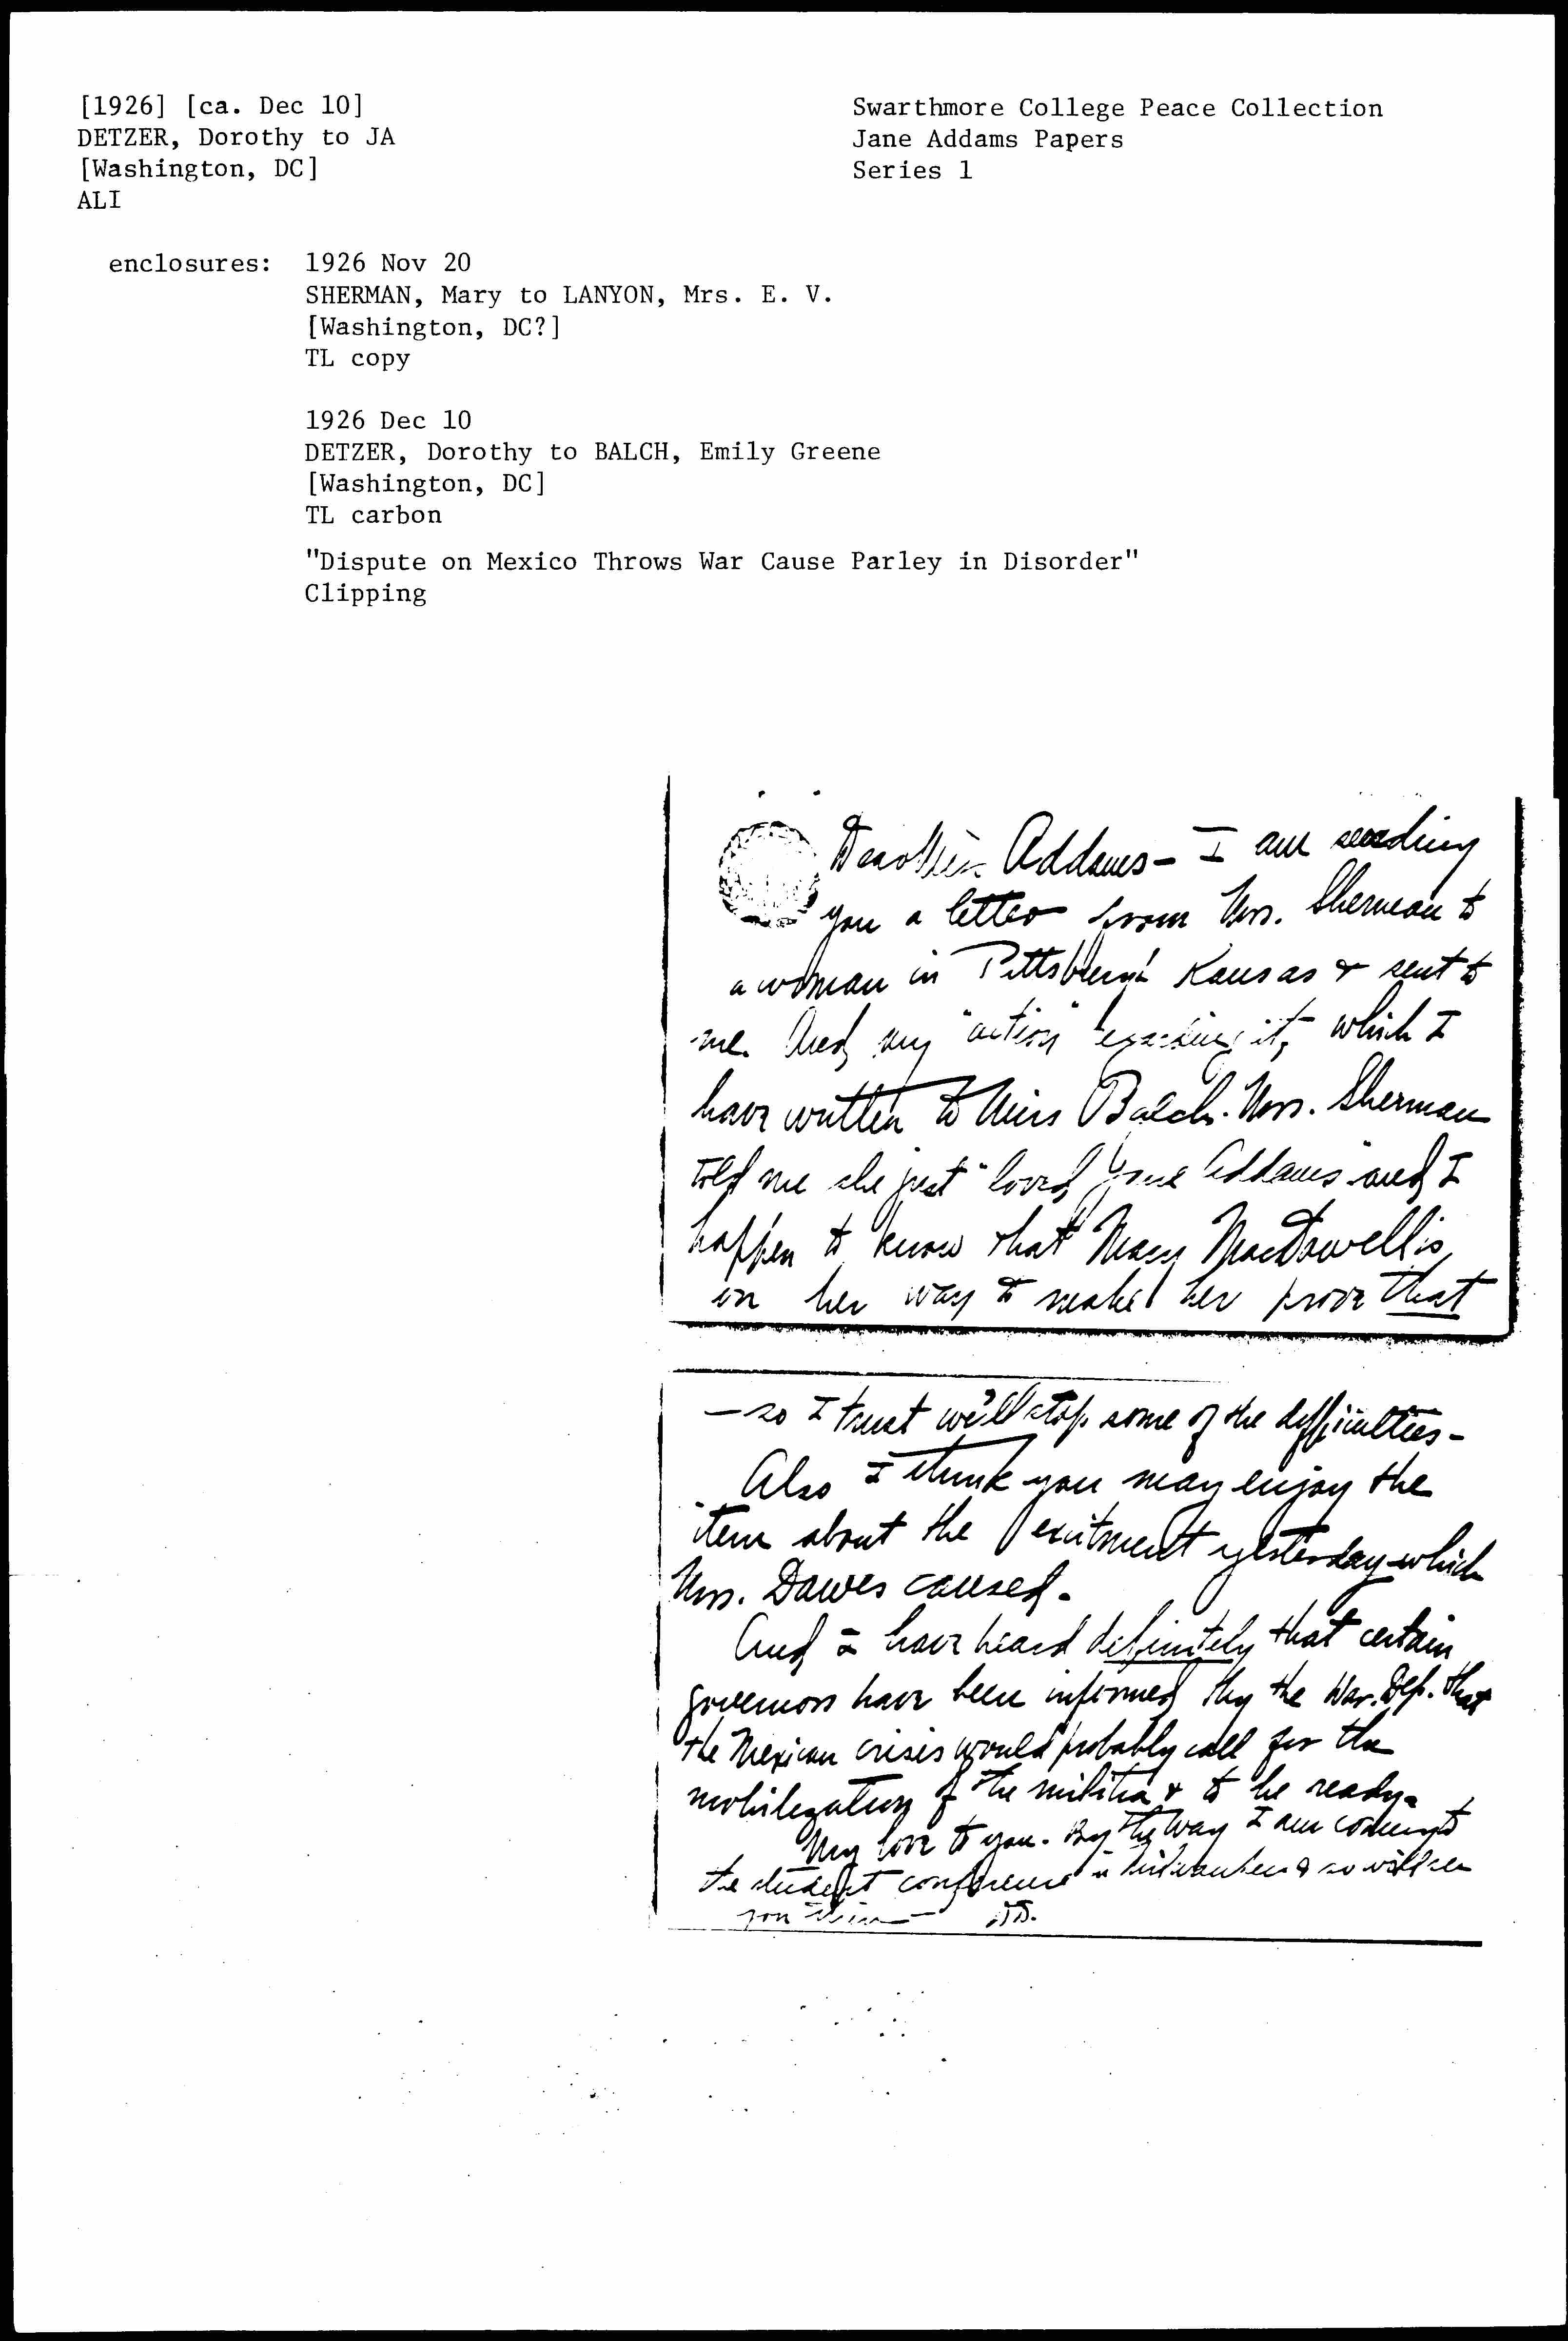 [1926] [ca. Dec 10]
DETZER, Dorothy to JA
[Washington, DC]
ALI
Swarthmore College Peace Collection
Jane Addams Papers
Series 1
enclosures: 1926 Nov 20
SHERMAN, Mary to LANYON, Mrs. E. V.
[Washington, DC?]
TL copy
1926 Dec 10
DETZER, Dorothy to BALCH, Emily Greene
[Washington, DC]
TL carbon
"Dispute on Mexico Throws War Cause Parley in Disorder"
Clipping
Dear Miss Addams - I am sending
you a letter from Mrs. Sherman to
a woman in Pittsburgh Kansas & sent to
me. And my "action" regarding it, which I
have written to Miss Balch. Mrs. Sherman
told me she just "loved Jane Addams" and I
happen to know that Mary MacDowell is
on her way to make her prove that
- so I trust we'll stop some of the difficulties -
Also I think you may enjoy the
item about the excitment yesterday which
Mrs. Dawes caused -
And I have heard definitely that certain
governors have been informed by the War. Dep. that
the Mexican crises would probably call for the
mobilization of the militia & to be ready -
My love to you. By the way I am coming to
the student conference in Milwaukee & so will see
you then - DD.